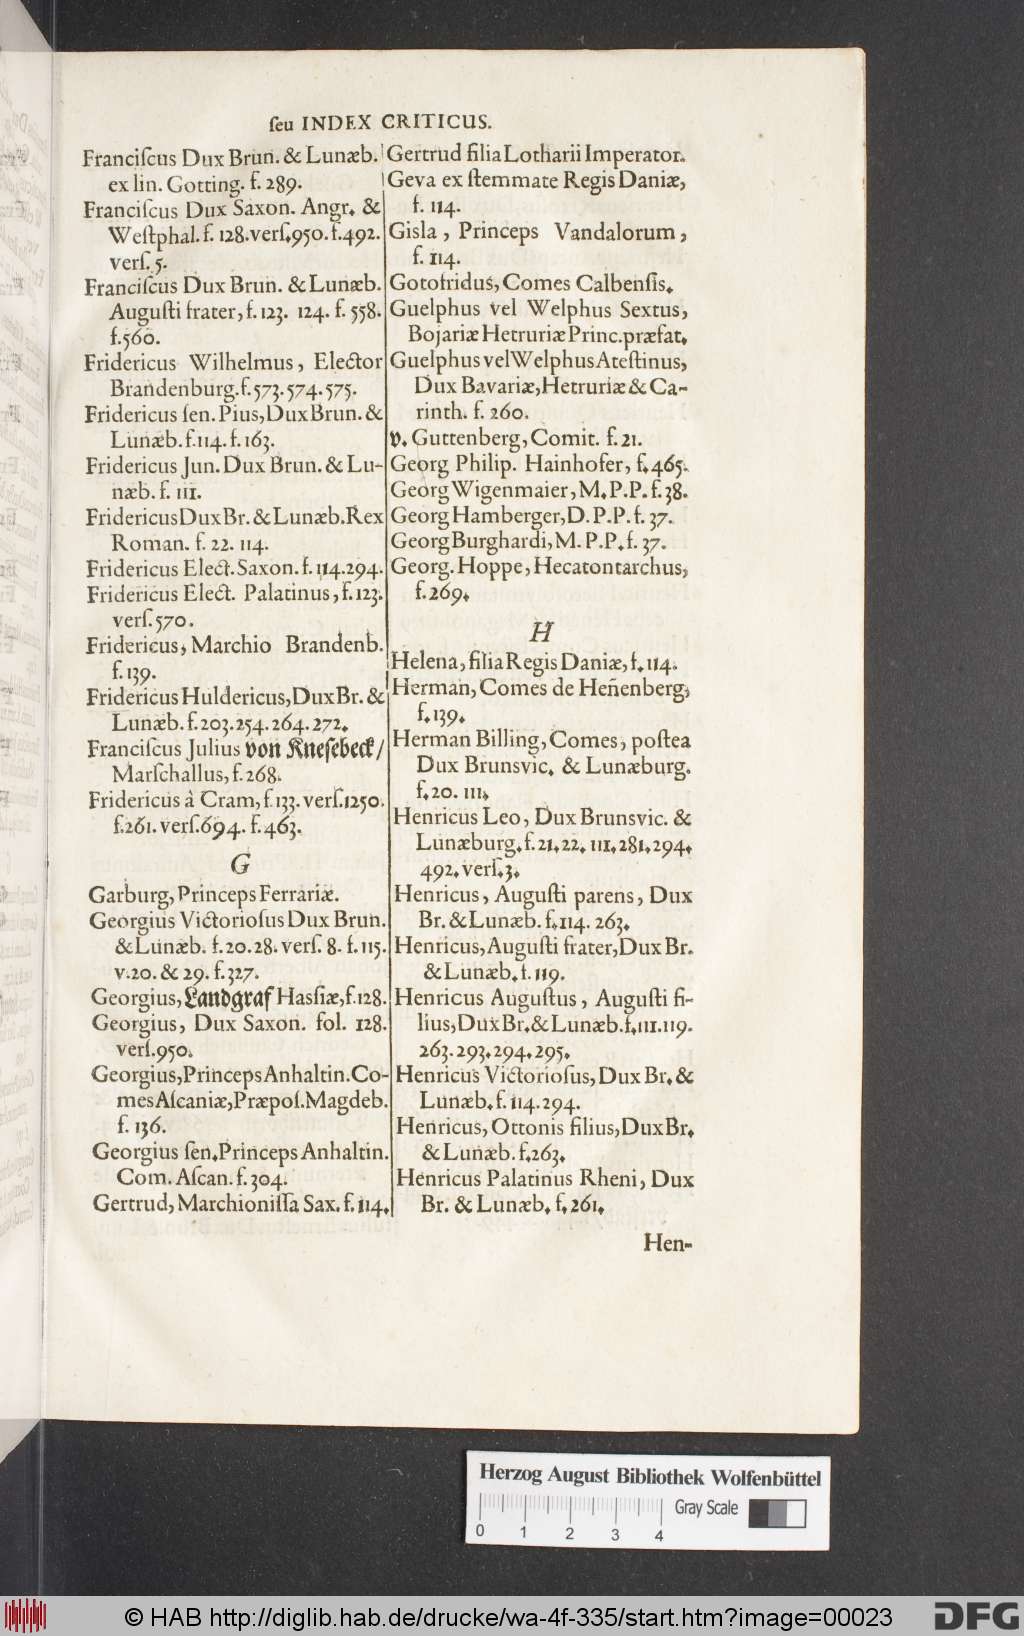 ſeu INDEX CRITICUS.
Franciſcus Dux Brun. & Lunæb.
ex lin. Gotting. f. 289.
Franciſcus Dux Saxon. Angr. &
Weſtphal. f. 128. verſ. 950. f. 492.
verſ. 5.
Franciſcus Dux Brun. & Lunæb.
Auguſti frater, f. 123. 124. f. 558.
f. 560.
Fridericus Wilhelmus, Elector
Brandenburg. f. 573. 574. 575.
Fridericus ſen. Pius, Dux Brun. &
Lunæb. f. 114. f. 163.
Fridericus Jun. Dux Brun. & Lu-
næb. f. 111.
Fridericus Dux Br. & Lunæb. Rex
Roman. f. 22. 114.
Fridericus Elect. Saxon. f. 114. 294.
Fridericus Elect. Palatinus, f. 123.
verſ. 570.
Fridericus, Marchio Brandenb.
f. 139.
Fridericus Huldericus, Dux Br. &
Lunæb. f. 203. 254. 264. 272.
Franciſcus Julius von Kneſebeck/
Marſchallus, f. 268.
Fridericus à Cram, f. 133. verſ. 1250.
f. 261. verſ. 694. f. 463.
G
Garburg, Princeps Ferrariæ.
Georgius Victorioſus Dux Brun.
& Lunæb. f. 20. 28. verſ. 8. f. 115.
v. 20. & 29. f. 327.
Georgius, Landgraf Haſſiæ, f. 128.
Georgius, Dux Saxon. fol. 128.
verſ. 950.
Georgius, Princeps Anhaltin. Co-
mes Aſcaniæ, Præpoſ. Magdeb.
f. 136.
Georgius ſen. Princeps Anhaltin.
Com. Aſcan. f. 304.
Gertrud, Marchioniſſa Sax. f. 114.
Gertrud filia Lotharii Imperator.
Geva ex ſtemmate Regis Daniæ,
f. 114.
Gisla, Princeps Vandalorum,
f. 114.
Gotofridus, Comes Calbenſis.
Guelphus vel Welphus Sextus,
Bojariæ Hetruriæ Princ. præfat.
Guelphus vel Welphus Ateſtinus,
Dux Bavariæ, Hetruriæ & Ca-
rinth. f. 260.
v. Guttenberg, Comit. f. 21.
Georg Philip. Hainhofer, f. 465.
Georg Wigenmaier, M. P. P. f. 38.
Georg Hamberger, D. P. P. f. 37.
Georg Burghardi, M. P. P. f. 37.
Georg. Hoppe, Hecatontarchus,
f. 269.
H
Helena, filia Regis Daniæ, f. 114.
Herman, Comes de Hen̄enberg,
f. 139.
Herman Billing, Comes, poſtea
Dux Brunsvic. & Lunæburg.
f. 20. 111.
Henricus Leo, Dux Brunsvic. &
Lunæburg. f. 21. 22. 111. 281. 294.
492. verſ. 3.
Henricus, Auguſti parens, Dux
Br. & Lunæb. f. 114. 263.
Henricus, Auguſti frater, Dux Br.
& Lunæb. f. 119.
Henricus Auguſtus, Auguſti fi-
lius, Dux Br. & Lunæb. f. 111. 119.
263. 293. 294. 295.
Henricus Victorioſus, Dux Br. &
Lunæb. f. 114. 294.
Henricus, Ottonis filius, Dux Br.
& Lunæb. f. 263.
Henricus Palatinus Rheni, Dux
Br. & Lunæb. f. 261.
Hen-
Herzog August Bibliothek Wolfenbüttel
Gray Scale
0 1 2 3 4
© HAB http://diglib.hab.de/drucke/wa-4f-335/start.htm?image=00023
DFG